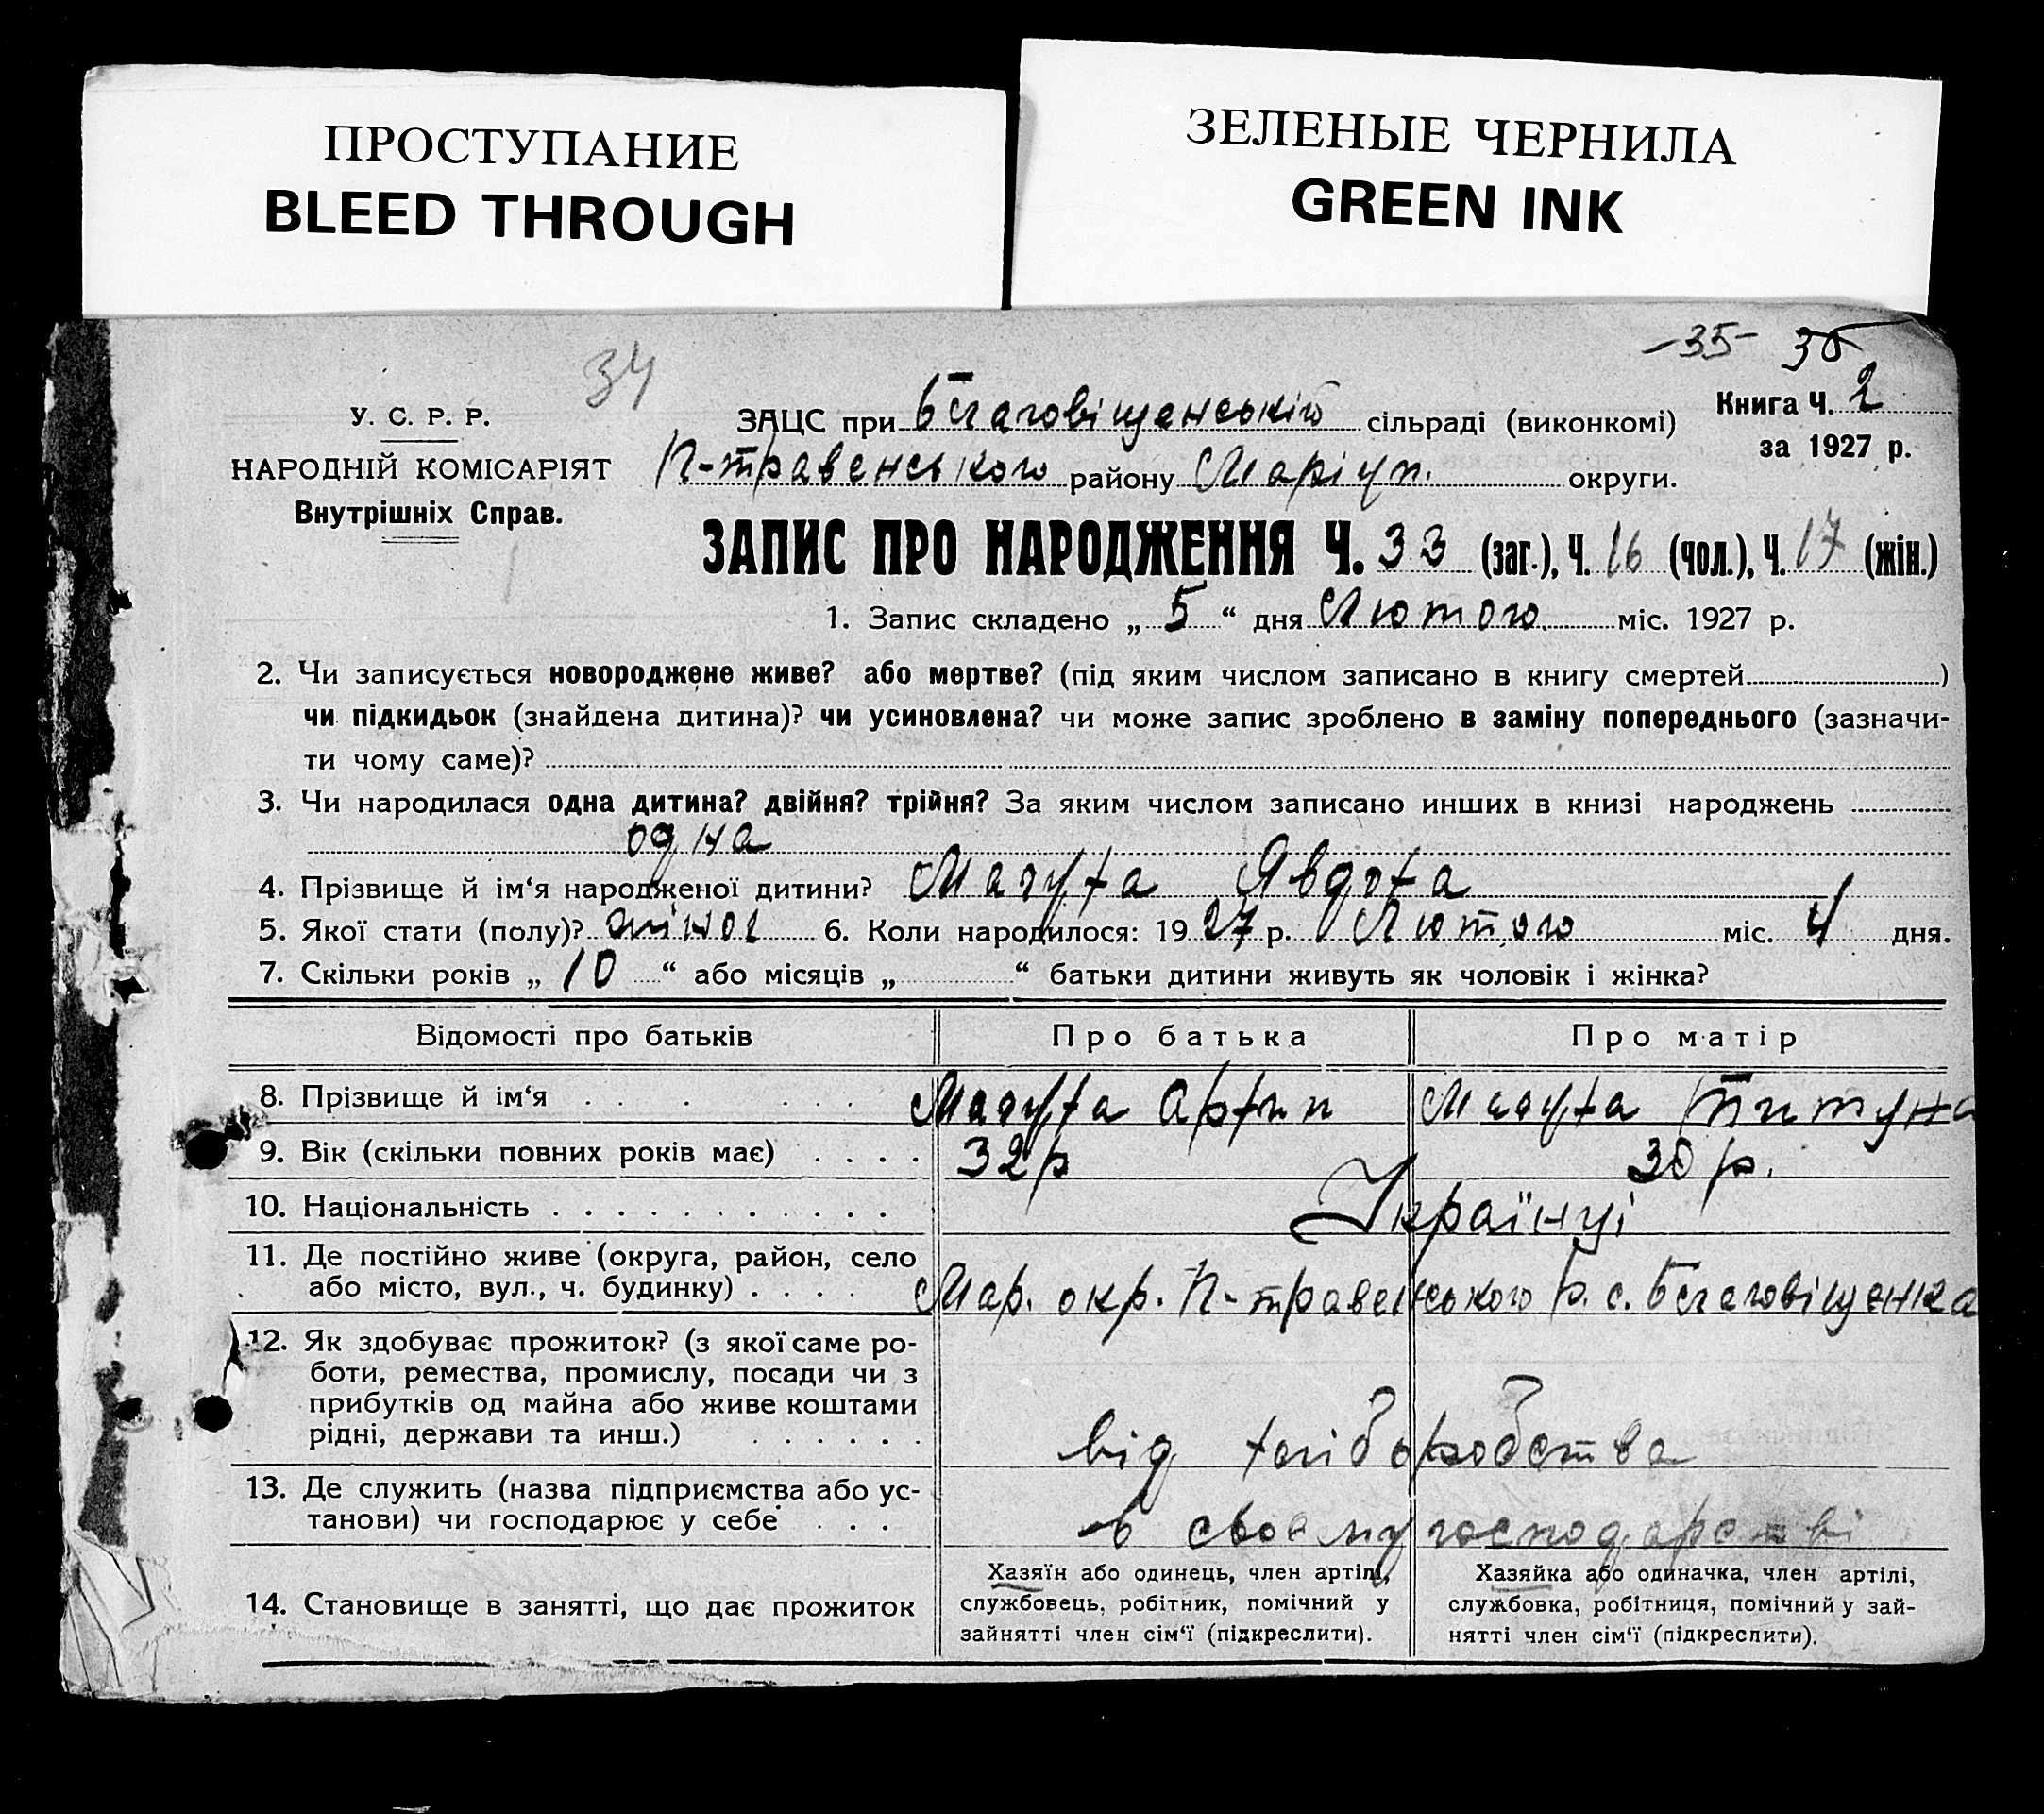 ПРОСТУПАНИЕ
BLEED THROUGH
ЗЕЛЕНЫЕ ЧЕРНИЛА
GREEN INK
-35- 36
34
У. С. Р. Р.
НАРОДНІЙ КОМІСАРІЯТ
Внутрішніх Справ.
Книга Ч. 2
за 1927 р.
ЗАЦС при Благовіщенській сільраді (виконкомі)
П-травенського району Маріуп. округи.
ЗАПИС ПРО НАРОДЖЕННЯ Ч. 33 (заг.), Ч. 16 (чол.), Ч. 17 (жін.)
1. Запис складено „ 5 “ дня Лютого міс. 1927 р.
2. Чи записується новороджене живе? або мертве? (під яким числом записано в книгу смертей )
чи підкидьок (знайдена дитина)? чи усиновлена? чи може запис зроблено в заміну попереднього (зазначи-
ти чому саме)?
3. Чи народилася одна дитина? двійня? трійня? За яким числом записано инших в книзі народжень
одна
4. Прізвище й ім‘я народженої дитини? Явдоха
5. Якої стати (полу)? жіноч 6. Коли народилося: 1927 р. Лютого міс. 4 дня.
7. Скільки років „ 10 “ або місяців „ “ батьки дитини живуть як чоловік і жінка?
Відомості про батьків Про батька Про матір
8. Прізвище й ім‘я
9. Вік (скільки повних років має) 32 р 30 р.
10. Національність Українці
11. Де постійно живе (округа, район, село
або місто, вул., ч. будинку) Мар. окр. П-травенського р. с. Благовіщенка
12. Як здобуває прожиток? (з якої саме ро-
боти, ремества, промислу, посади чи з
прибутків од майна або живе коштами
рідні, держави та инш.) від хліборобства
13. Де служить (назва підприємства або ус-
танови) чи господарює у себе в своєму господарстві
14. Становище в занятті, що дає прожиток
Хазяїн або одинець, член артілі,
службовець, робітник, помічний у
зайнятті член сім‘ї (підкреслити).
Хазяйка або одиначка, член артілі,
службовка, робітниця, помічний у зай-
нятті член сім‘ї (підкреслити).